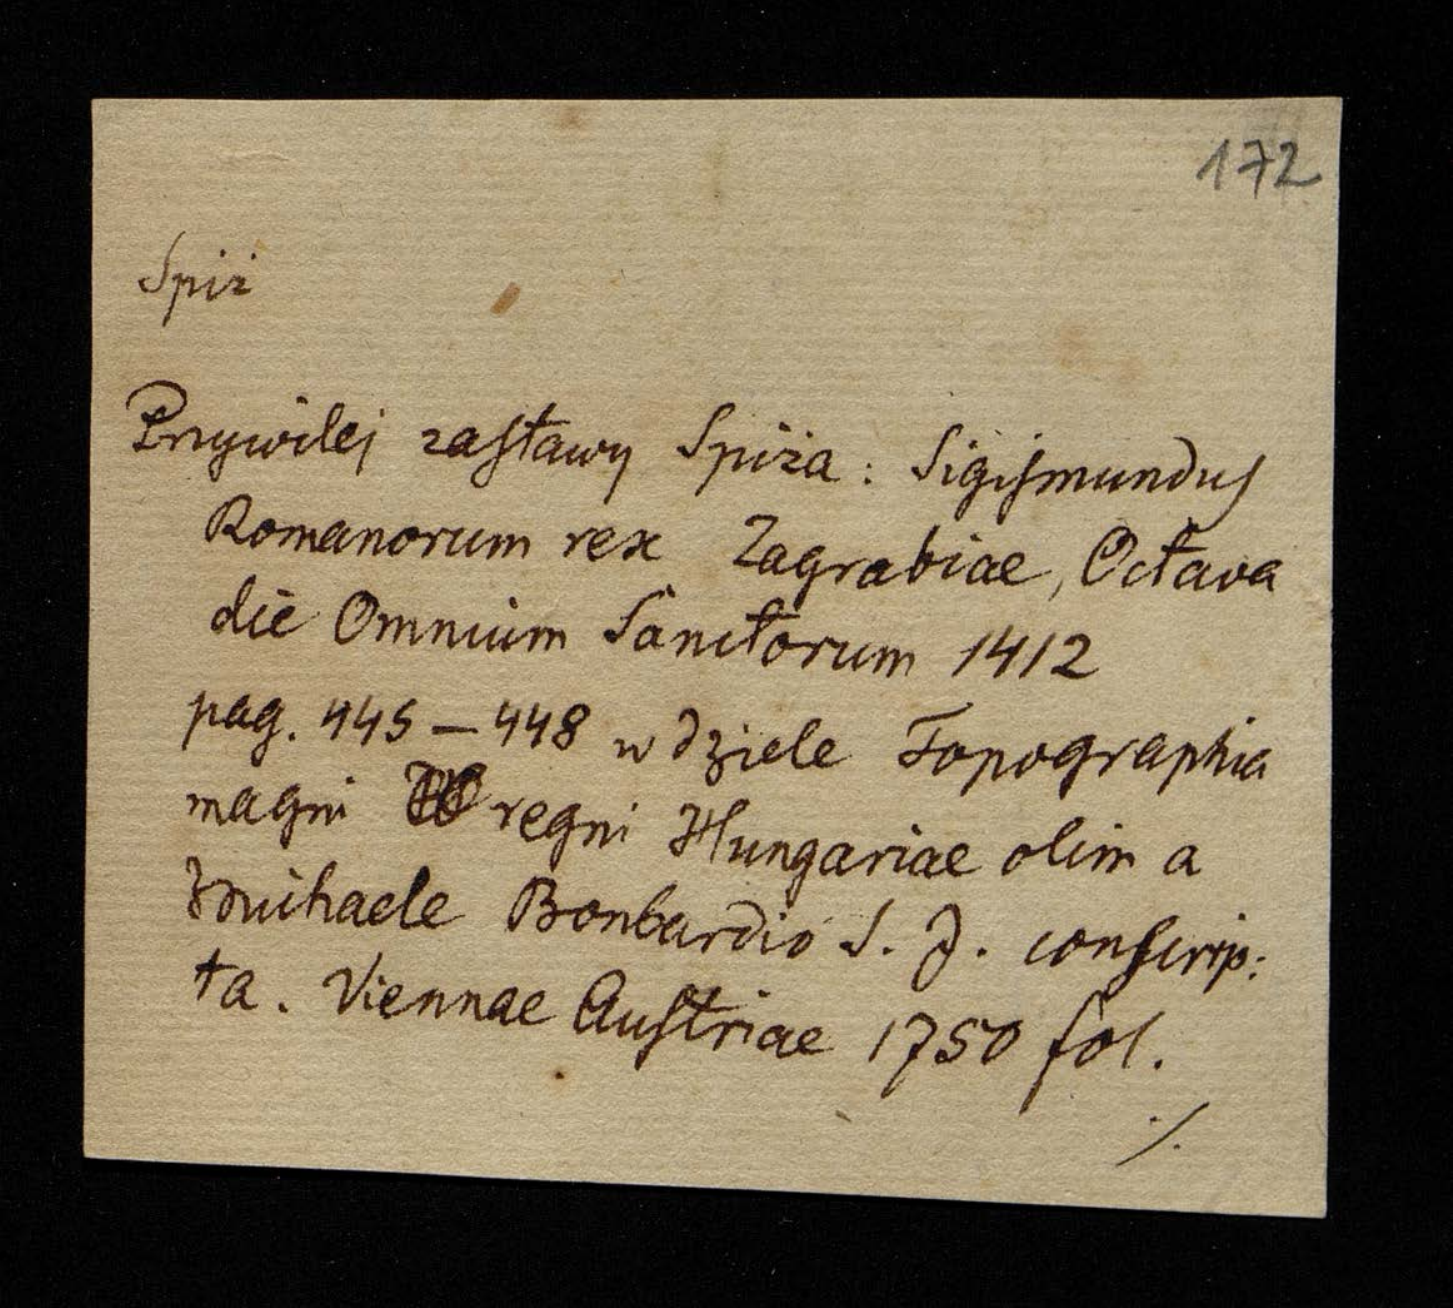 172
Spiż
Przywilej zastawy Spiża : Sigismundus
Romanorum rex Zagrabiae, Octava
die Omnium Sanctorum 1412
pag. 445 – 448 w dziele Topographia
magni regni Hungariae olim a
Michaele Bonbardio S. J. conscrip:
ta. Viennae Austriae 1750 fol.
./.